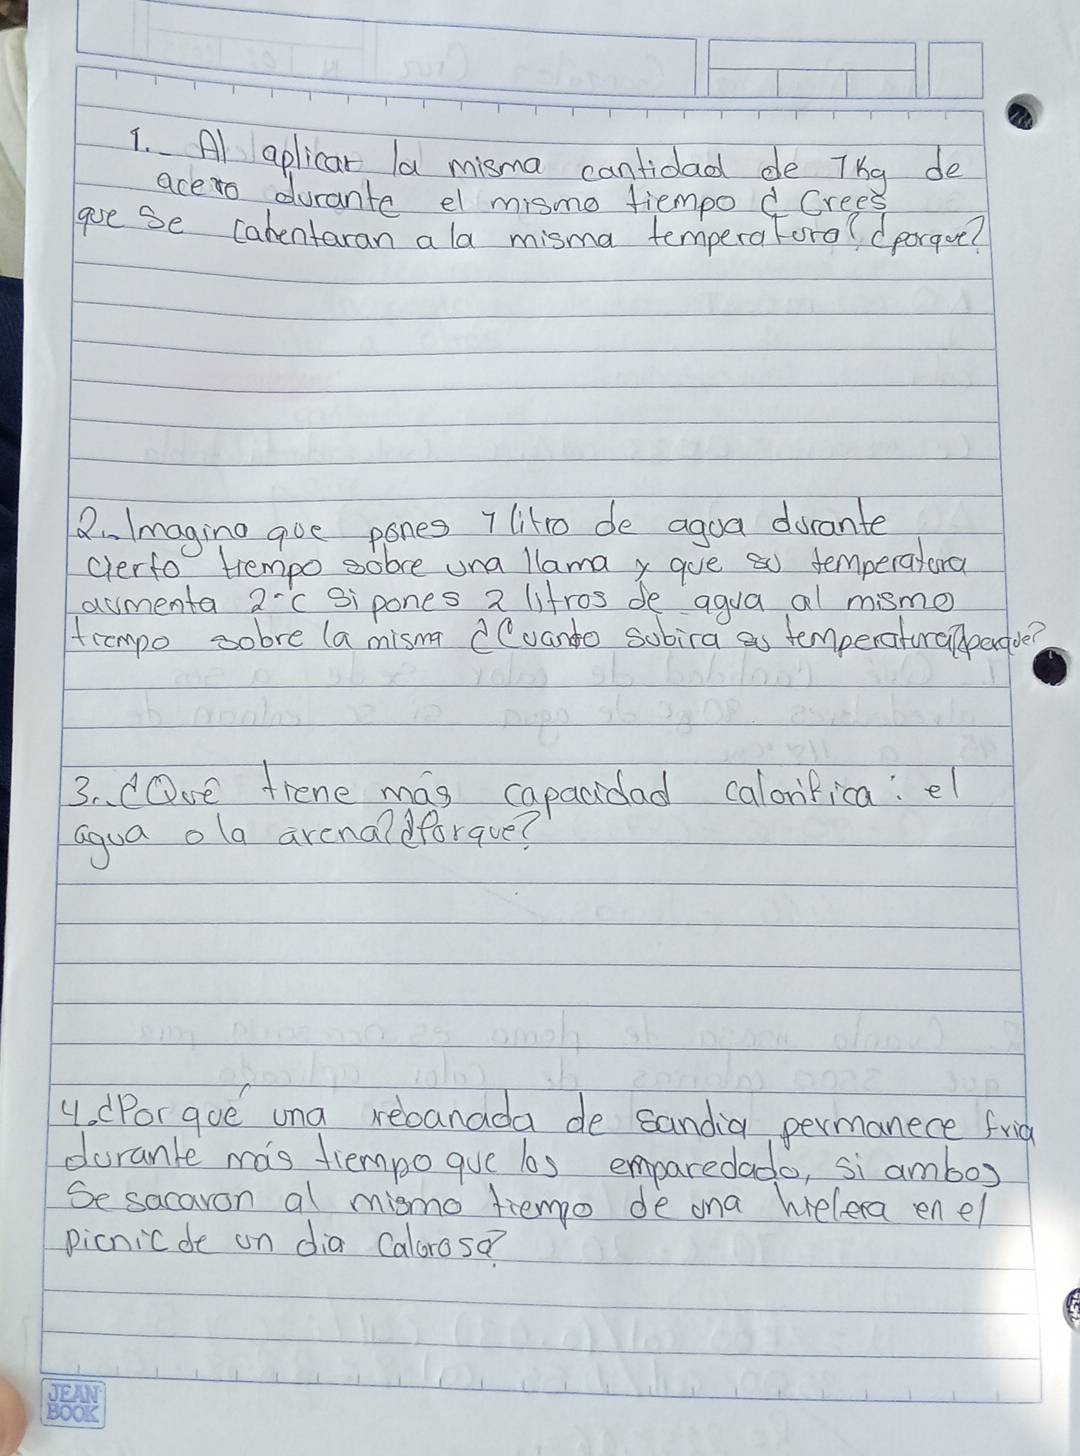 1.- Al aplicar la misma cantidad de 1Kg de
acero durante el mismo tiempo ¿ Crees
que Se calientaran a la misma temperatura? ¿porque?
2.- Imagina que pones 1 litro de agua durante
cierto tiempo sobre una llama y que su temperatura
aumenta 2°C Si pones 2 litros de agua al mismo
tiempo sobre la misma ¿Cuanto Subira su temperatura?¿porque?
3.- ¿Qué tiene más capacidad calorifica: el
agua o la arena?¿Porque?
4.¿Por qué una rebanada de sandia permanece fria
durante más tiempo que los emparedado, si ambos
Se sacaron al mismo tiempo de una hielera en el
picnic de un dia Caloroso?
JEAN
BOOK